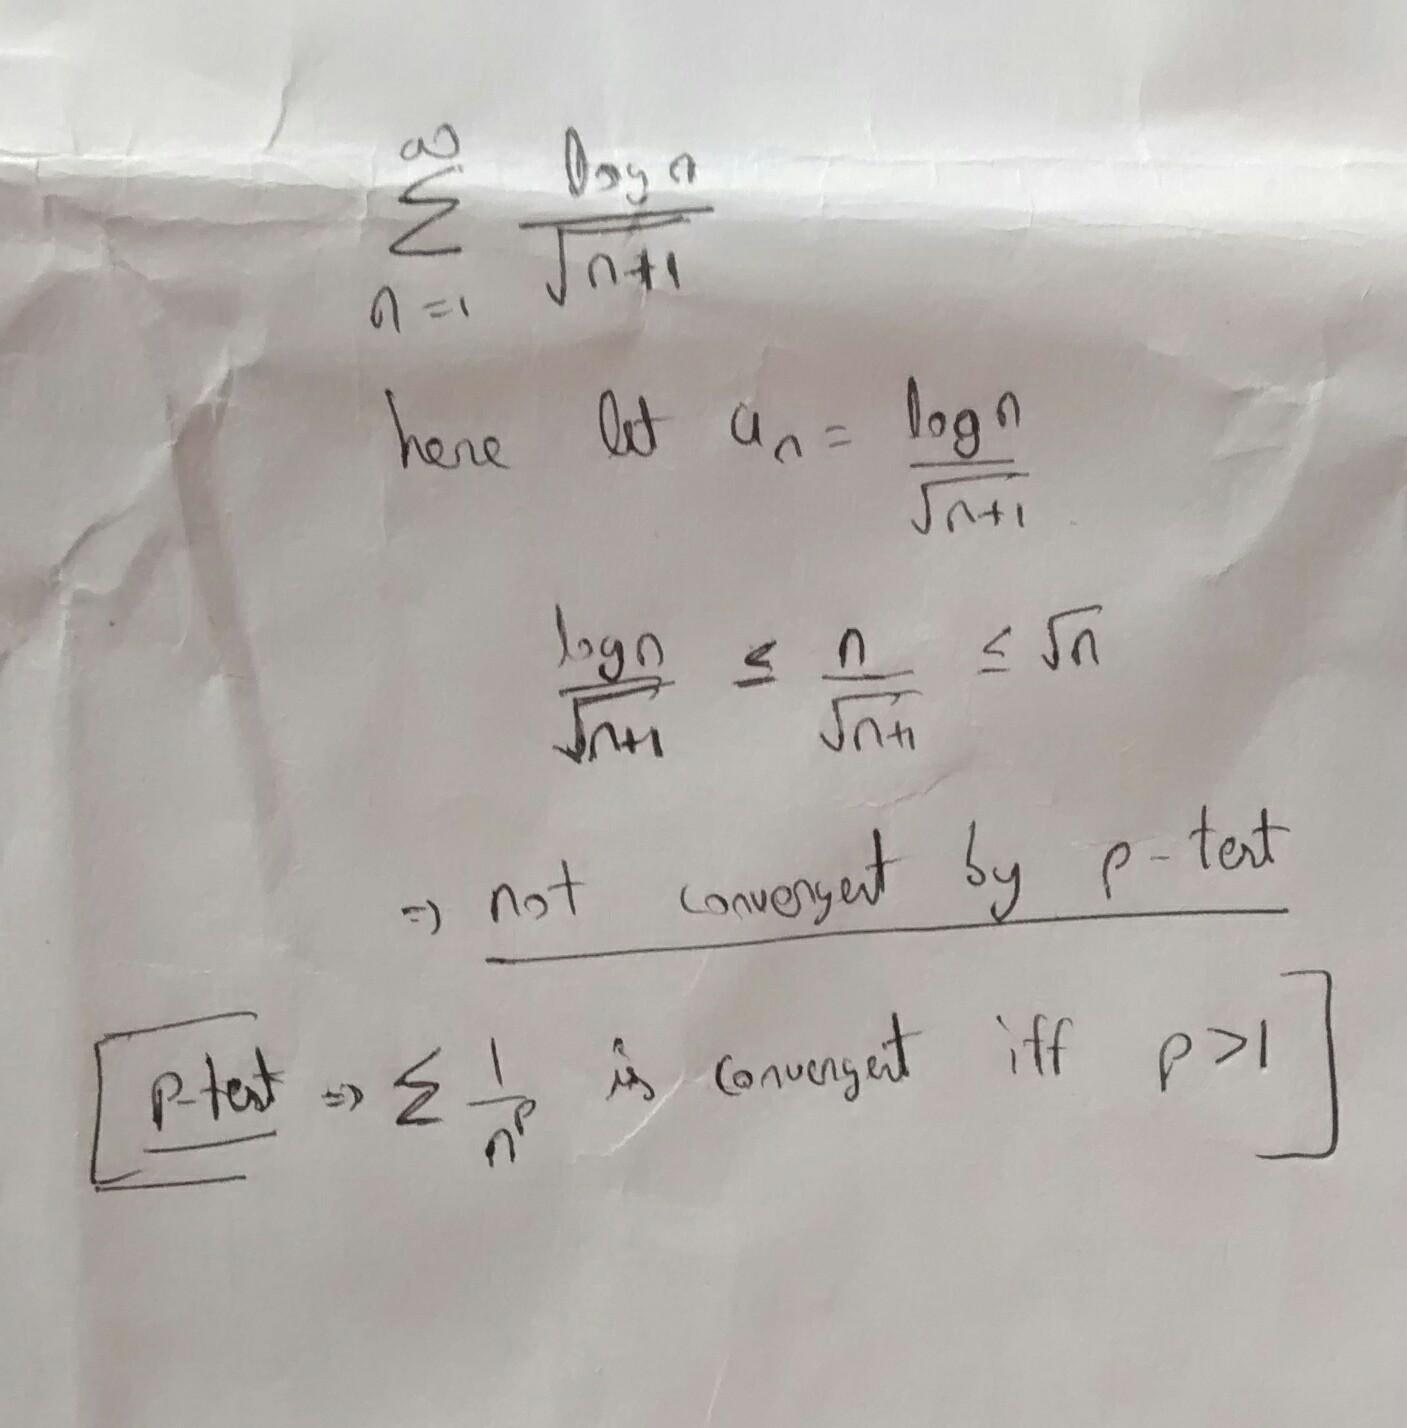 ∞
∑ log n / √n+1
n=1
here let aₙ = log n / √n+1
log n / √n+1 ≤ n / √n+1 ≤ √n
⇒ not convergent by p-test
[p-test ⇒ ∑ 1/nᵖ is convergent iff p>1]